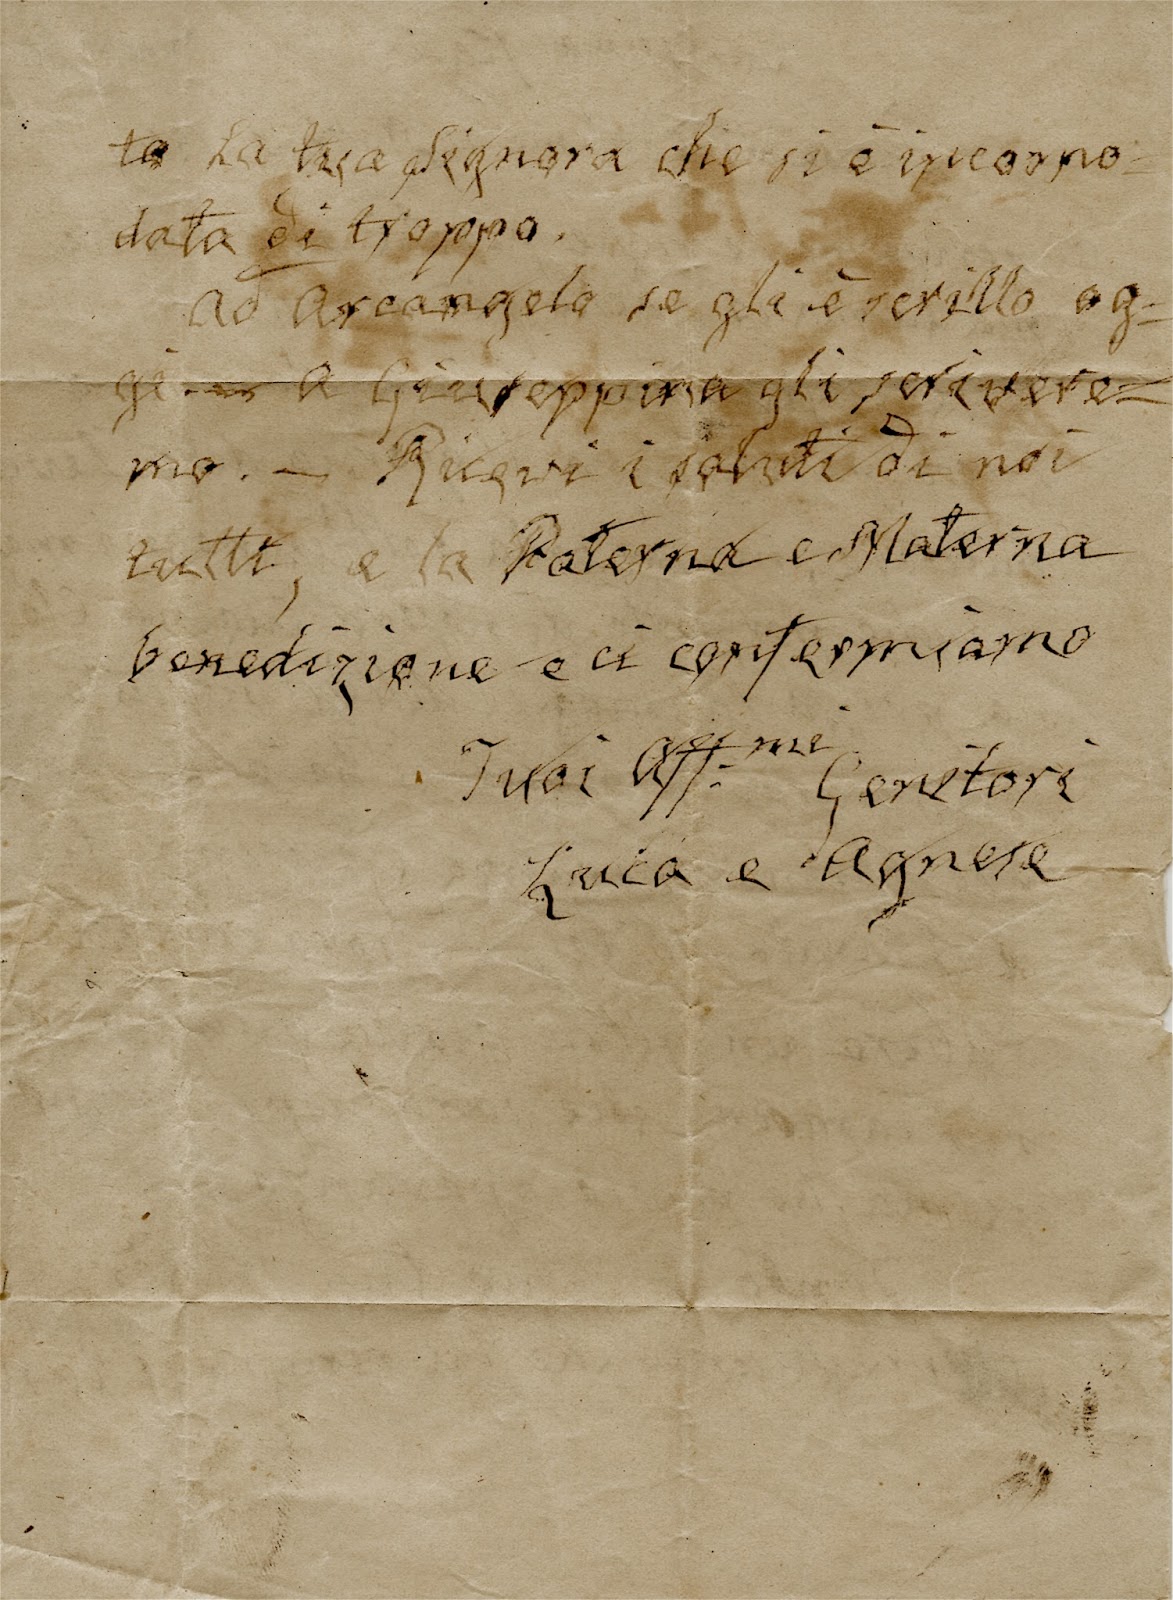 ta La tua Signora che si è incomo=
data di troppo.
Ad Arcangelo se gli è scritto og=
gi. — A Giuseppina gli scrivere=
mo. — Ricevi i saluti di noi
tutti, e la Paterna e Materna
benedizione e ci confermiamo
Tuoi Aff.mi Genitori
Luca e Agnese